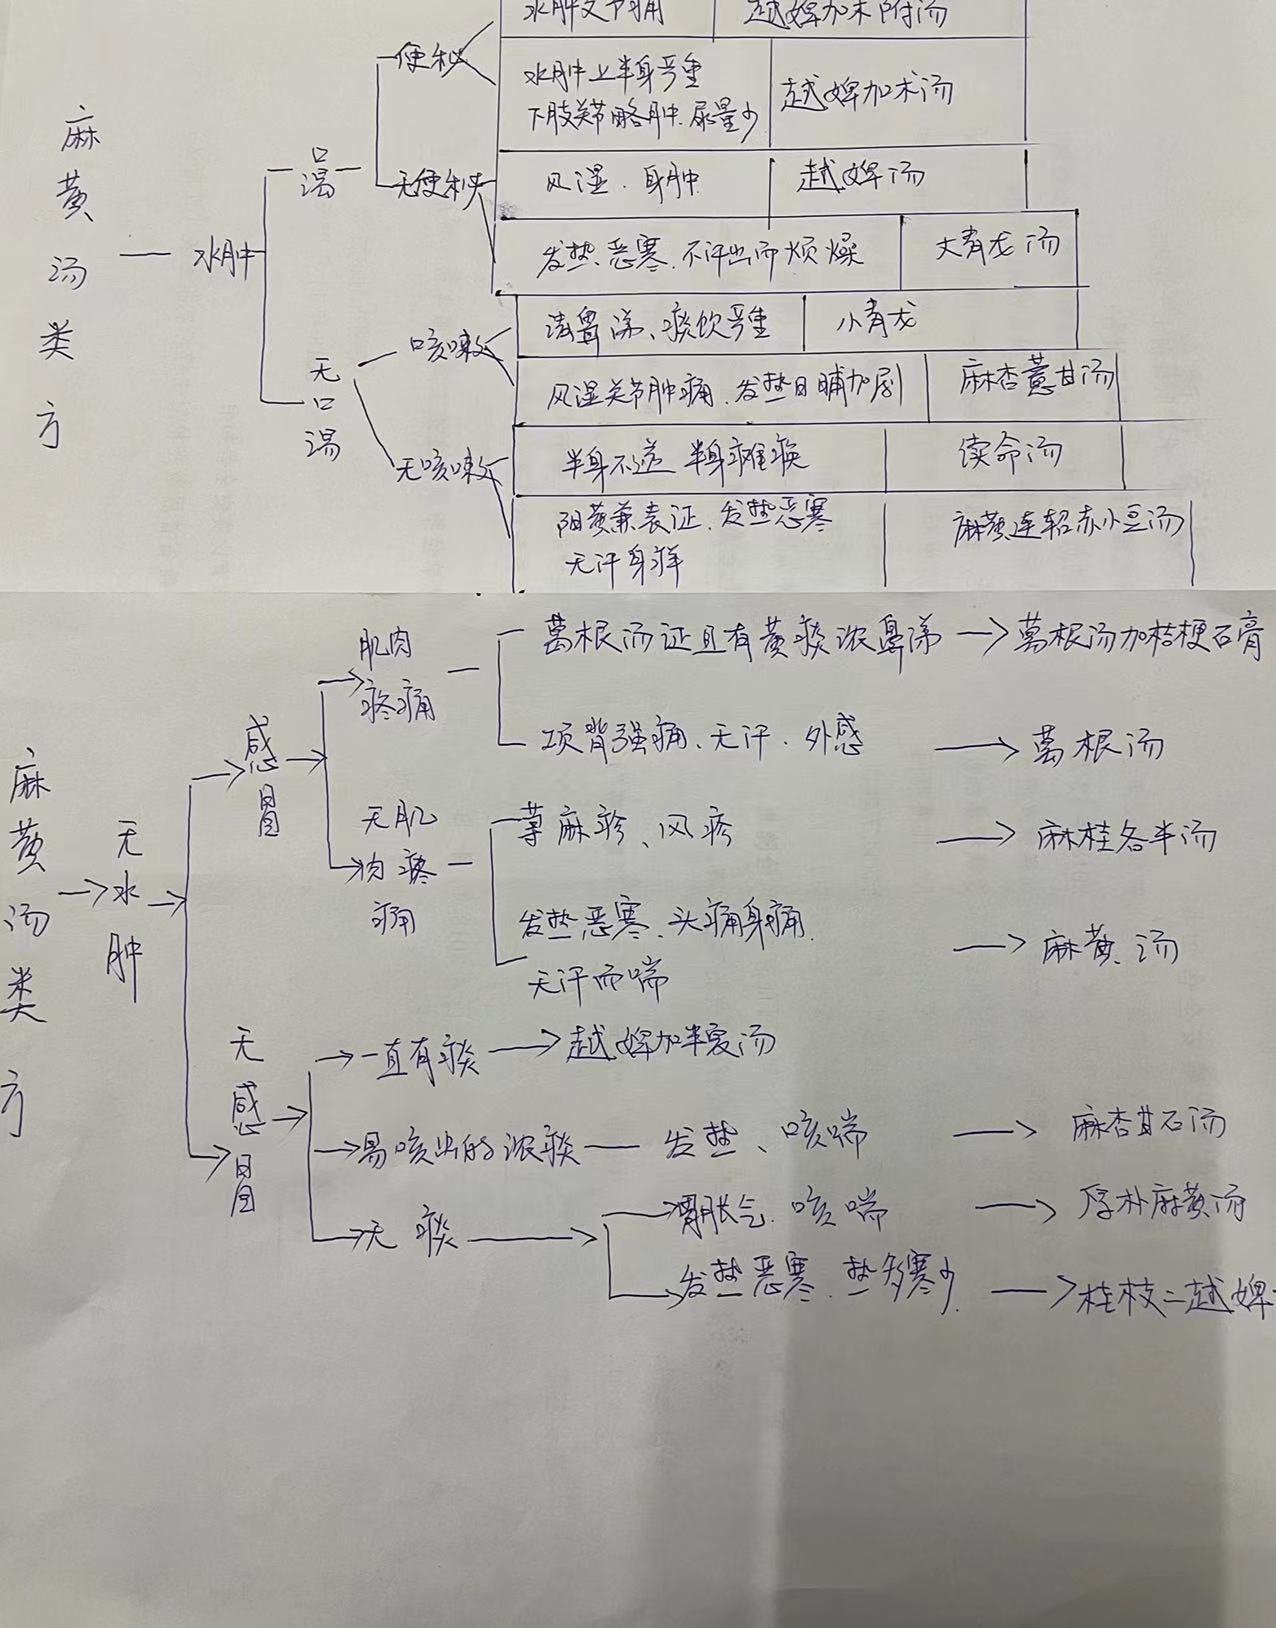 越婢加术附汤
便秘
水肿上半身严重
下肢关节略肿.尿量少
越婢加术汤
麻黄汤类方
水肿
口渴
无便秘
风湿.身肿
越婢汤
发热、恶寒.不汗出而烦燥
大青龙汤
无口渴
咳嗽
清鼻涕、痰饮严重
小青龙
风湿关节肿痛.发热日晡加剧
麻杏薏甘汤
无咳嗽
半身不遂 半身瘫痪
续命汤
阳黄兼表证.发热恶寒
无汗身痒
麻黄连轺赤小豆汤
麻黄汤类方
无水肿
感冒
肌肉
疼痛
葛根汤证且有黄痰浓鼻涕
葛根汤加桔梗石膏
项背强痛、无汗.外感
葛根汤
无肌
肉疼
痛
荨麻疹、风疹
麻桂各半汤
发热恶寒、头痛身痛.
无汗而喘
麻黄汤
无感冒
一直有痰
越婢加半夏汤
易咳出的浓痰
发热、咳喘
麻杏甘石汤
无痰
胃胀气.咳喘
厚朴麻黄汤
发热恶寒.热多寒少.
桂枝二越婢一